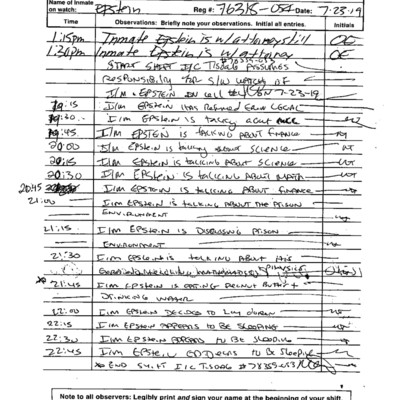 Name of Inmate
on watch: Epstein Reg #76318-054 Date: 7-23-19
Time Observations: Briefly note your observations. Initial all entries. Initials
1:15pm Inmate Epstein is w/attorney still OE
1:30pm Inmate Epstein is w/attorney OE
START SHIFT I/C Tisdag #78355-053 ASSUMES
RESPONSIBILITY FOR S/W WATCH OF
I/M EPSTEIN ON 7-23-19
19:15 I/M EPSTEIN HAS REFUSED
19:30 I/M EPSTEIN IS TALKING ABOUT
19:45 I/M EPSTEIN IS TALKING ABOUT FINANCE
20:00 I/M EPSTEIN IS talking about SCIENCE
20:15 I/M EPSTEIN IS TALKING ABOUT SCIENCE
20:30 I/M EPSTEIN IS TALKING ABOUT MATH
20:45 I/M EPSTEIN IS TALKING ABOUT FINANCE
21:00 I/M EPSTEIN IS TALKING ABOUT THE PRISON
ENVIRONMENT
21:15 I/M EPSTEIN IS DISCUSSING PRISON
ENVIRONMENT
21:30 I/M EPSTEIN IS TALKING ABOUT HIS
21:45 I/M EPSTEIN IS EATING PEANUT BUTTER +
DRINKING WATER
22:00 I/M EPSTEIN DECIDED TO LAY DOWN
22:15 I/M EPSTEIN APPEARS TO BE SLEEPING
22:30 I/M EPSTEIN APPEARS TO BE SLEEPING
22:45 I/M EPSTEIN APPEARS TO BE SLEEPING
END SHIFT I/C Tisdag #78355-053
Note to all observers: Legibly print and sign your name at the beginning of your shift.